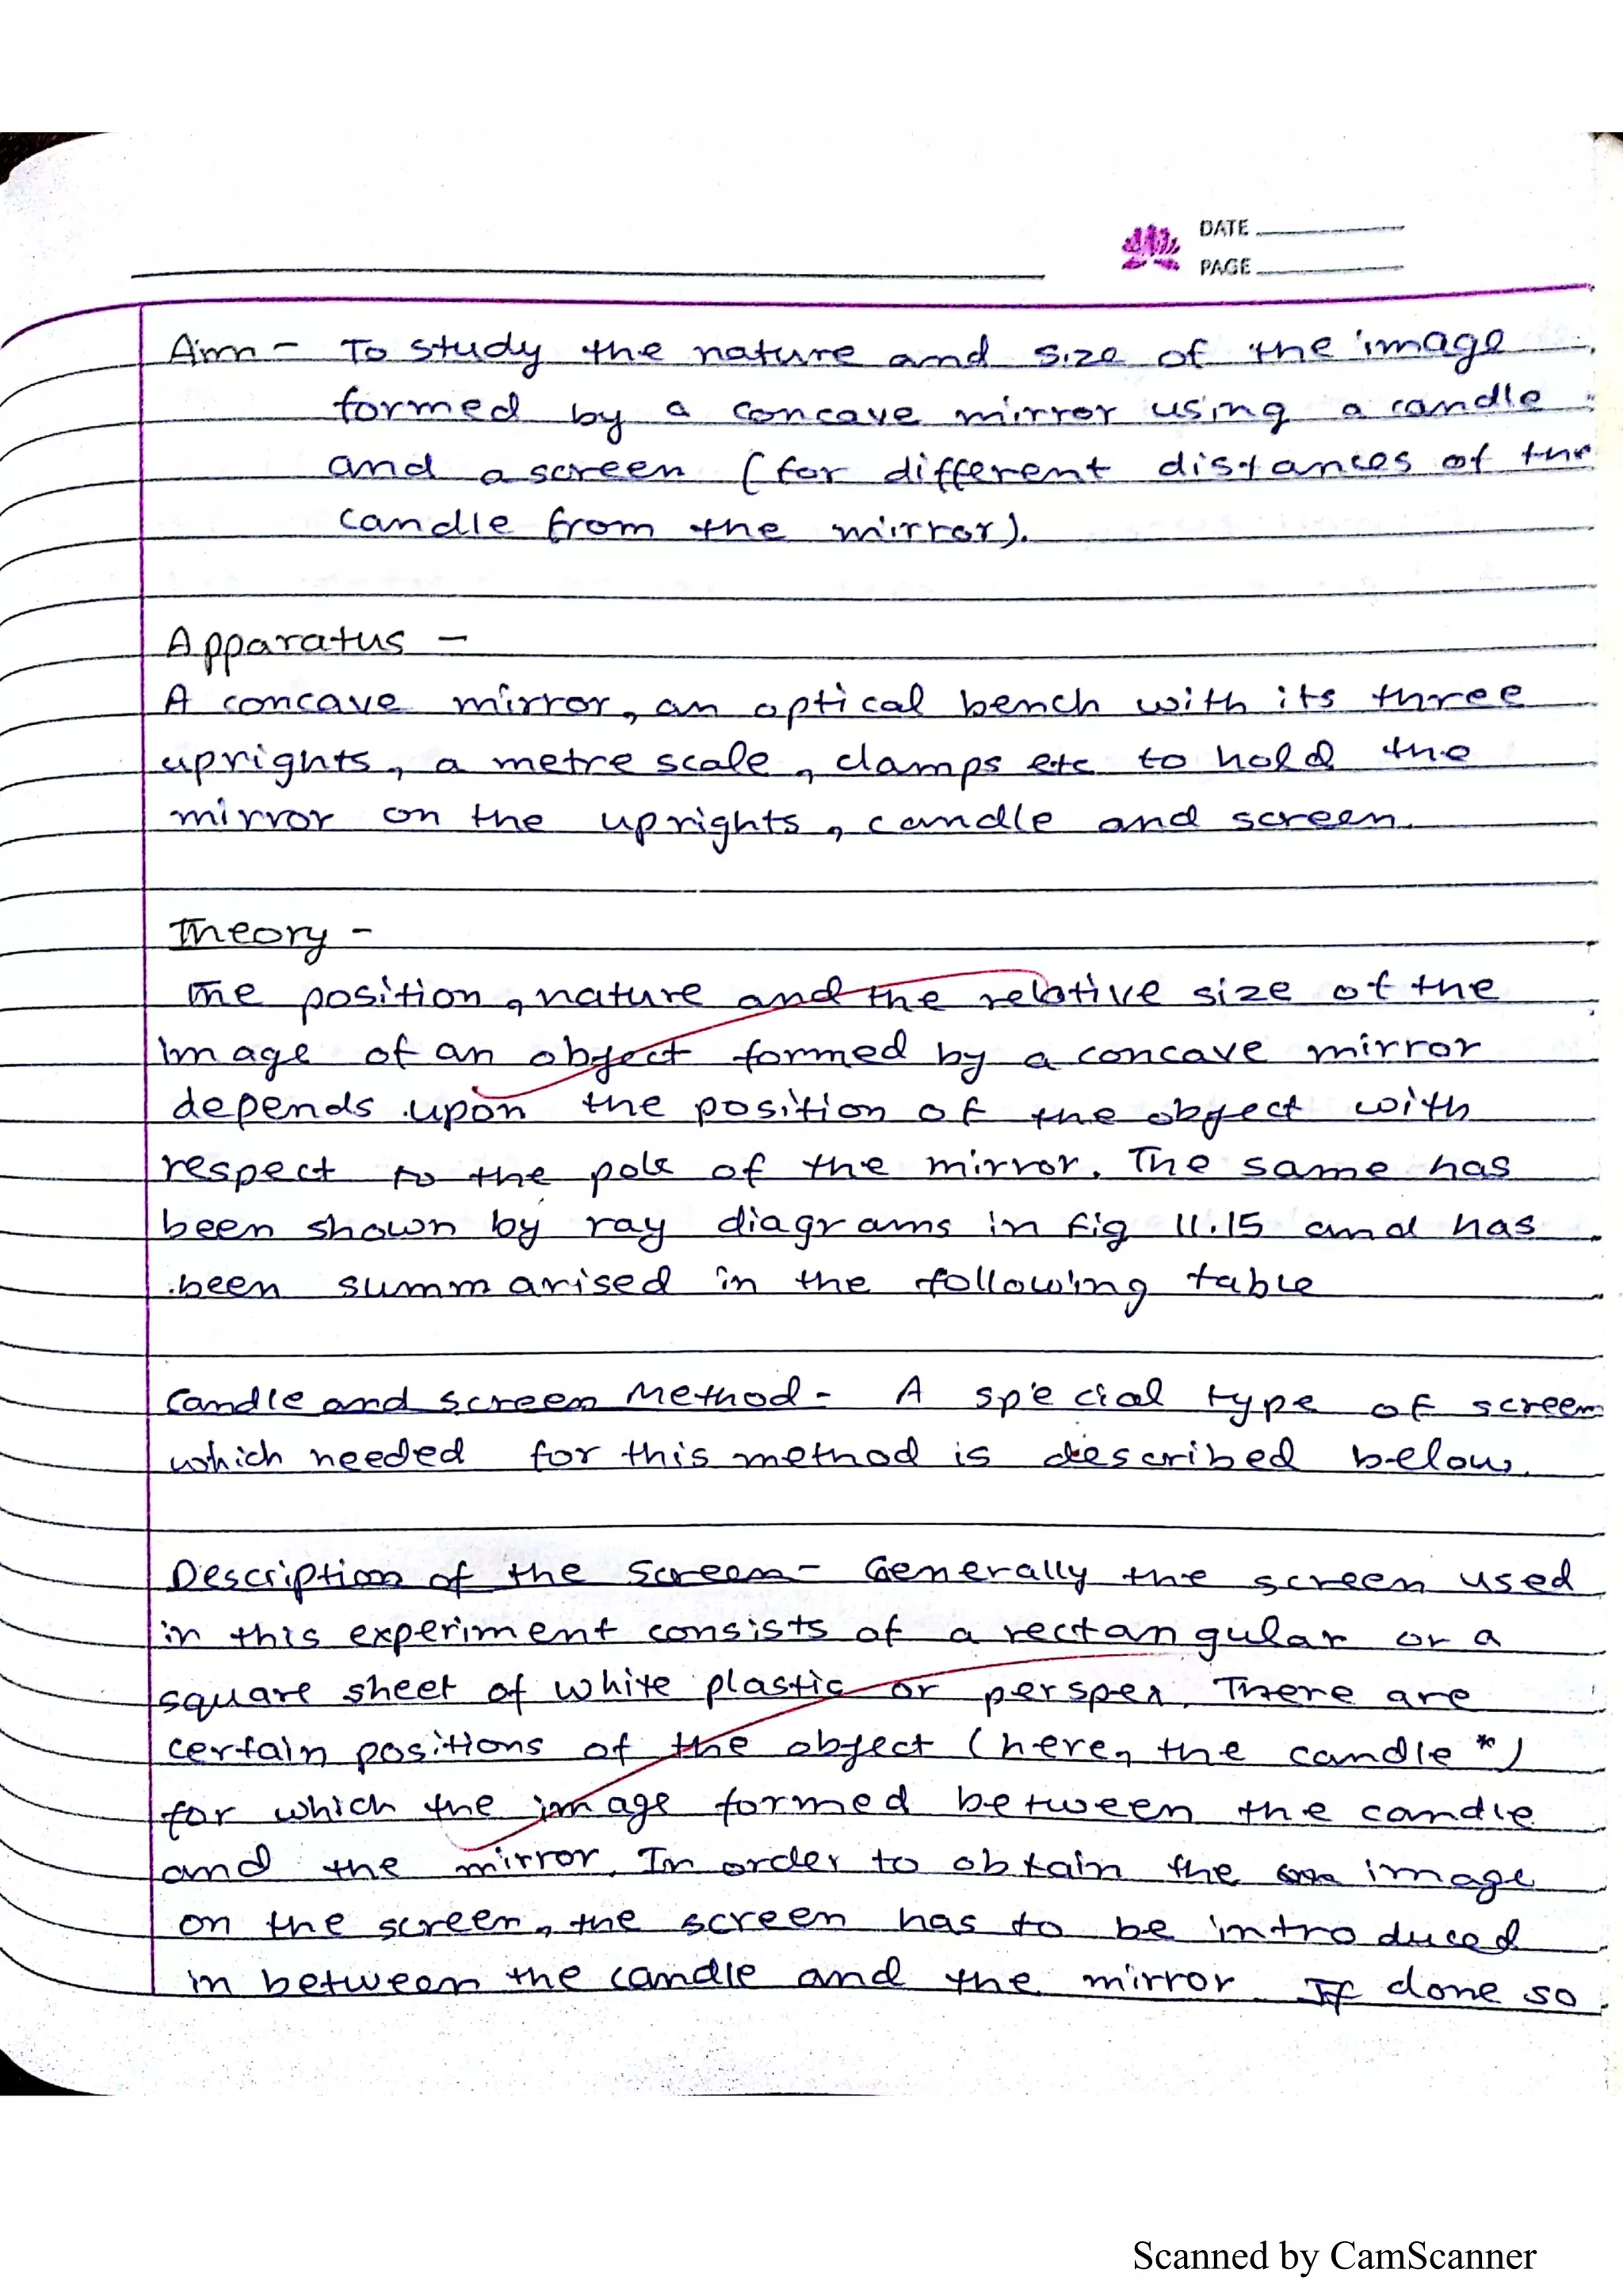 DATE
PAGE
Aim - To study the nature and size of the image
formed by a concave mirror using a candle
and a screen (for different distances of the
candle from the mirror).
Apparatus -
A concave mirror, an optical bench with its three
uprights, a metre scale, clamps etc to hold the
mirror on the uprights, candle and screen.
Theory -
The position, nature and the relative size of the
image of an object formed by a concave mirror
depends upon the position of the object with
respect to the pole of the mirror. The same has
been shown by ray diagrams in fig 11.15 and has
been summarised in the following table
Candle and screen Method - A special type of screen
which needed for this method is described below.
Description of the Screen - Generally the screen used
in this experiment consists of a rectangular or a
square sheet of white plastic or perspex. There are
certain positions of the object (here, the candle *)
for which the image formed between the candle
and the mirror. In order to obtain the image
on the screen, the screen has to be introduced
in between the candle and the mirror. If done so
Scanned by CamScanner